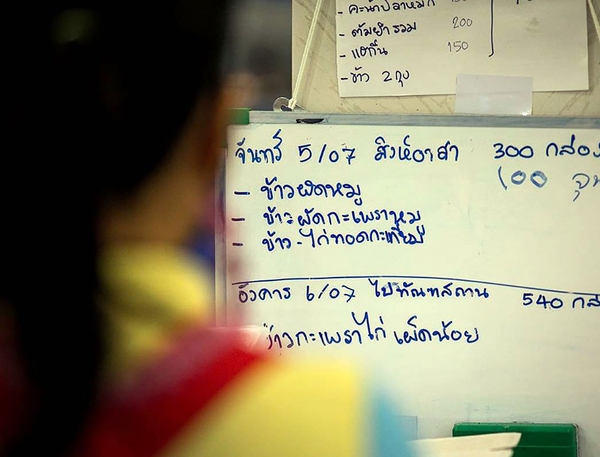 - คะน้าปลาหมึก 150
- ต้มยำรวม 200
- แฮกึ๊น 150
- ข้าว 2 ถุง
จันทร์ 5/07 สิงห์อาสา 300 กล่อง
100
- ข้าวผัดหมู
- ข้าวผัดกะเพราหมู
- ข้าว-ไก่ทอดกะเทียม
อังคาร 6/07 ไปทัณฑสถาน 540
ข้าวกะเพราไก่ เผ็ดน้อย